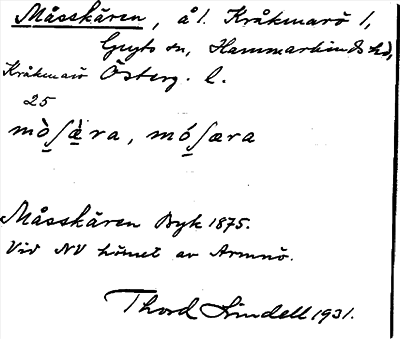 Måsskären, ål. Kråkmarö 1,
Gryts sn, Hammarkinds hd,
Kråkmarö Österg. l.
25
mò̱ʃæ̱̀ra, mó̱ʃæra
Måsskären Byk 1875.
Vid NV hörnet av Armnö.
Thord Lindell 1931.